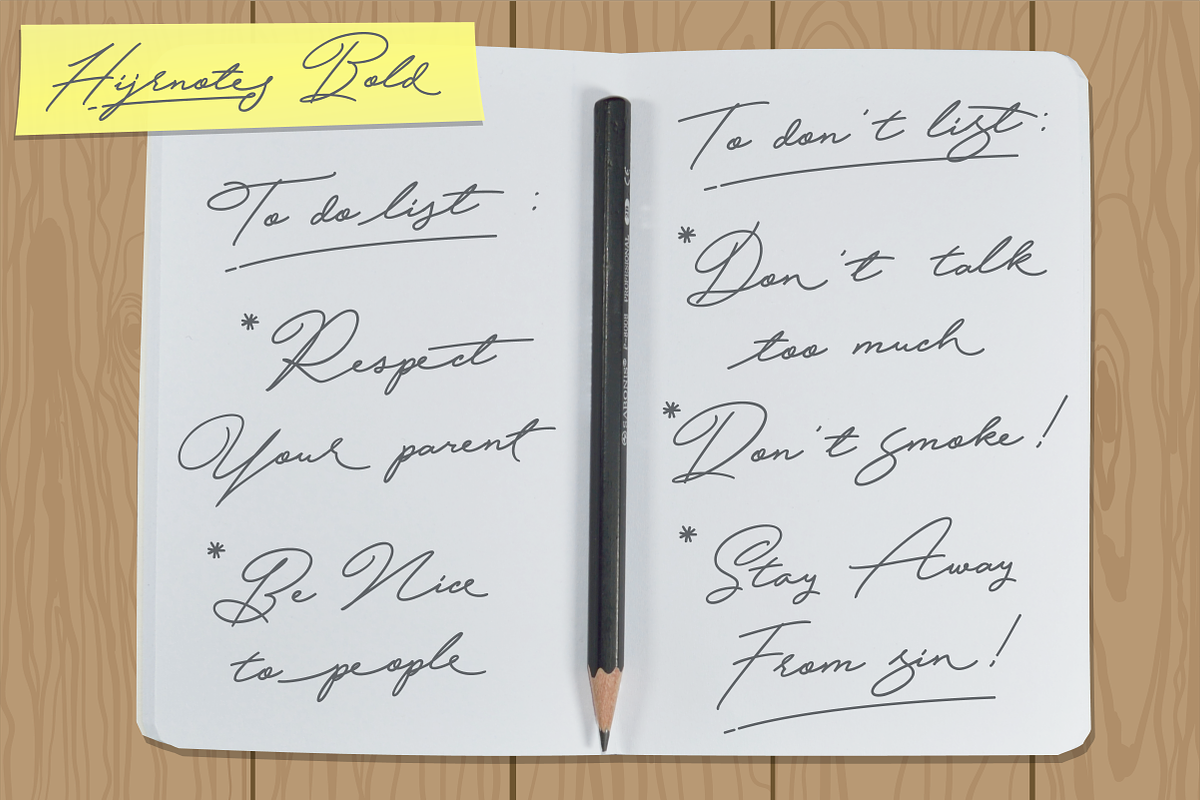 Hijrnotes Bold
To do list :
* Respect
Your parent
* Be Nice
to people
To don't list:
* Don't talk
too much
* Don't smoke!
* Stay Away
From sin!
PROFESSIONAL 2B CE